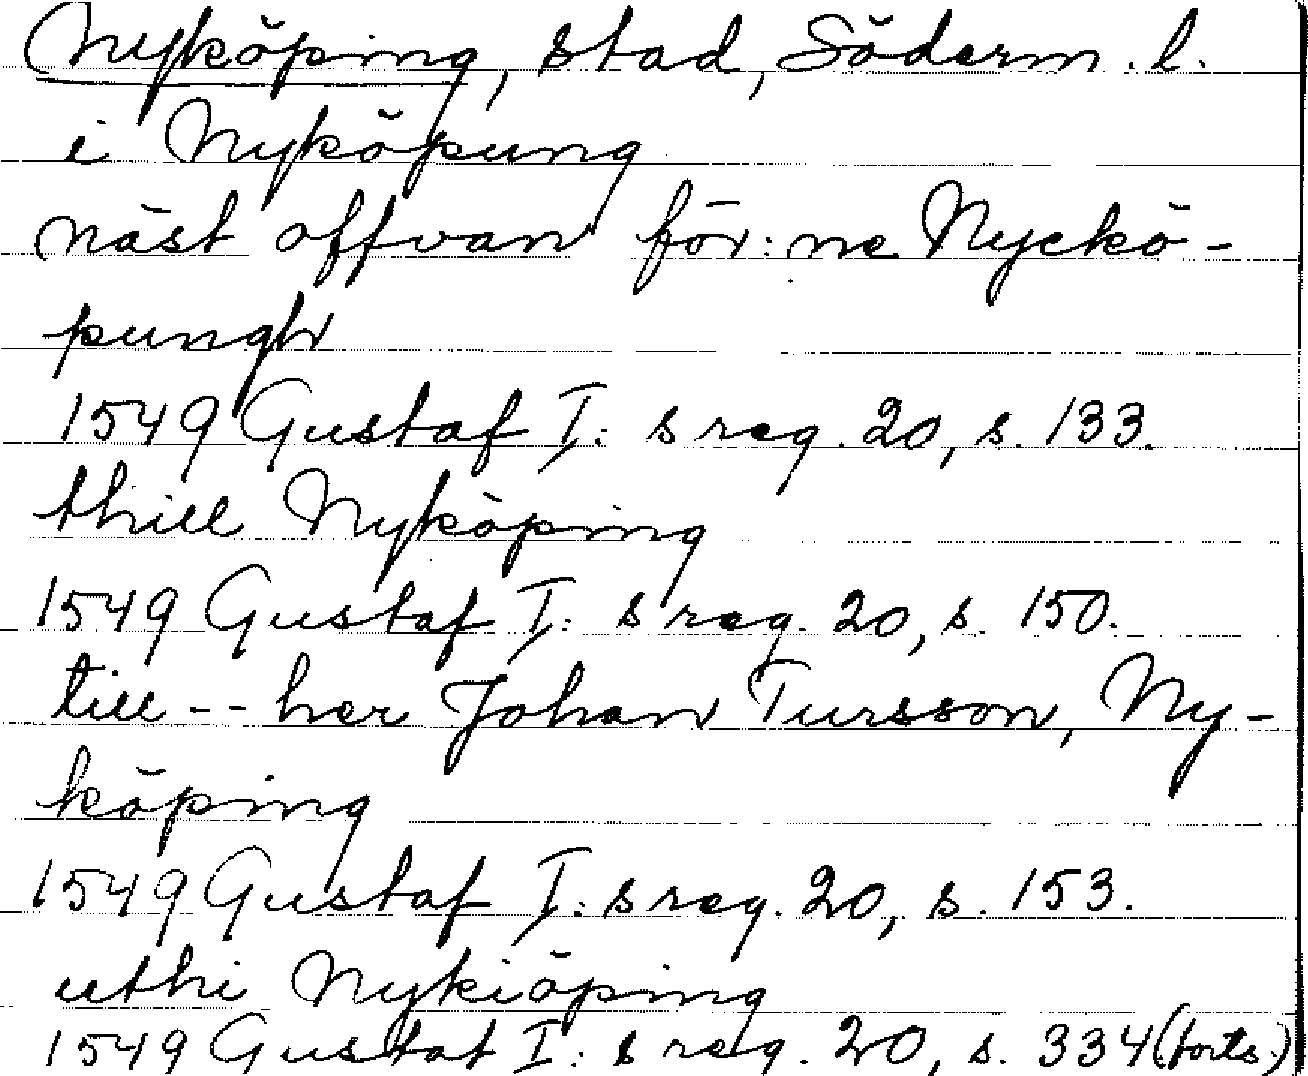 Nyköping, stad, Söderm. l.
i Nyköpung
näst offvan för:ne Nyckö-
pungh
1549 Gustaf I:s reg. 20, s. 133.
thill Nyköping
1549 Gustaf I:s reg. 20, s. 150.
till -- her Johan Tursson, Ny-
köping
1549 Gustaf I:s reg. 20, s. 153.
uthi Nykiöping
1549 Gustaf I:s reg. 20, s. 334 (forts.)